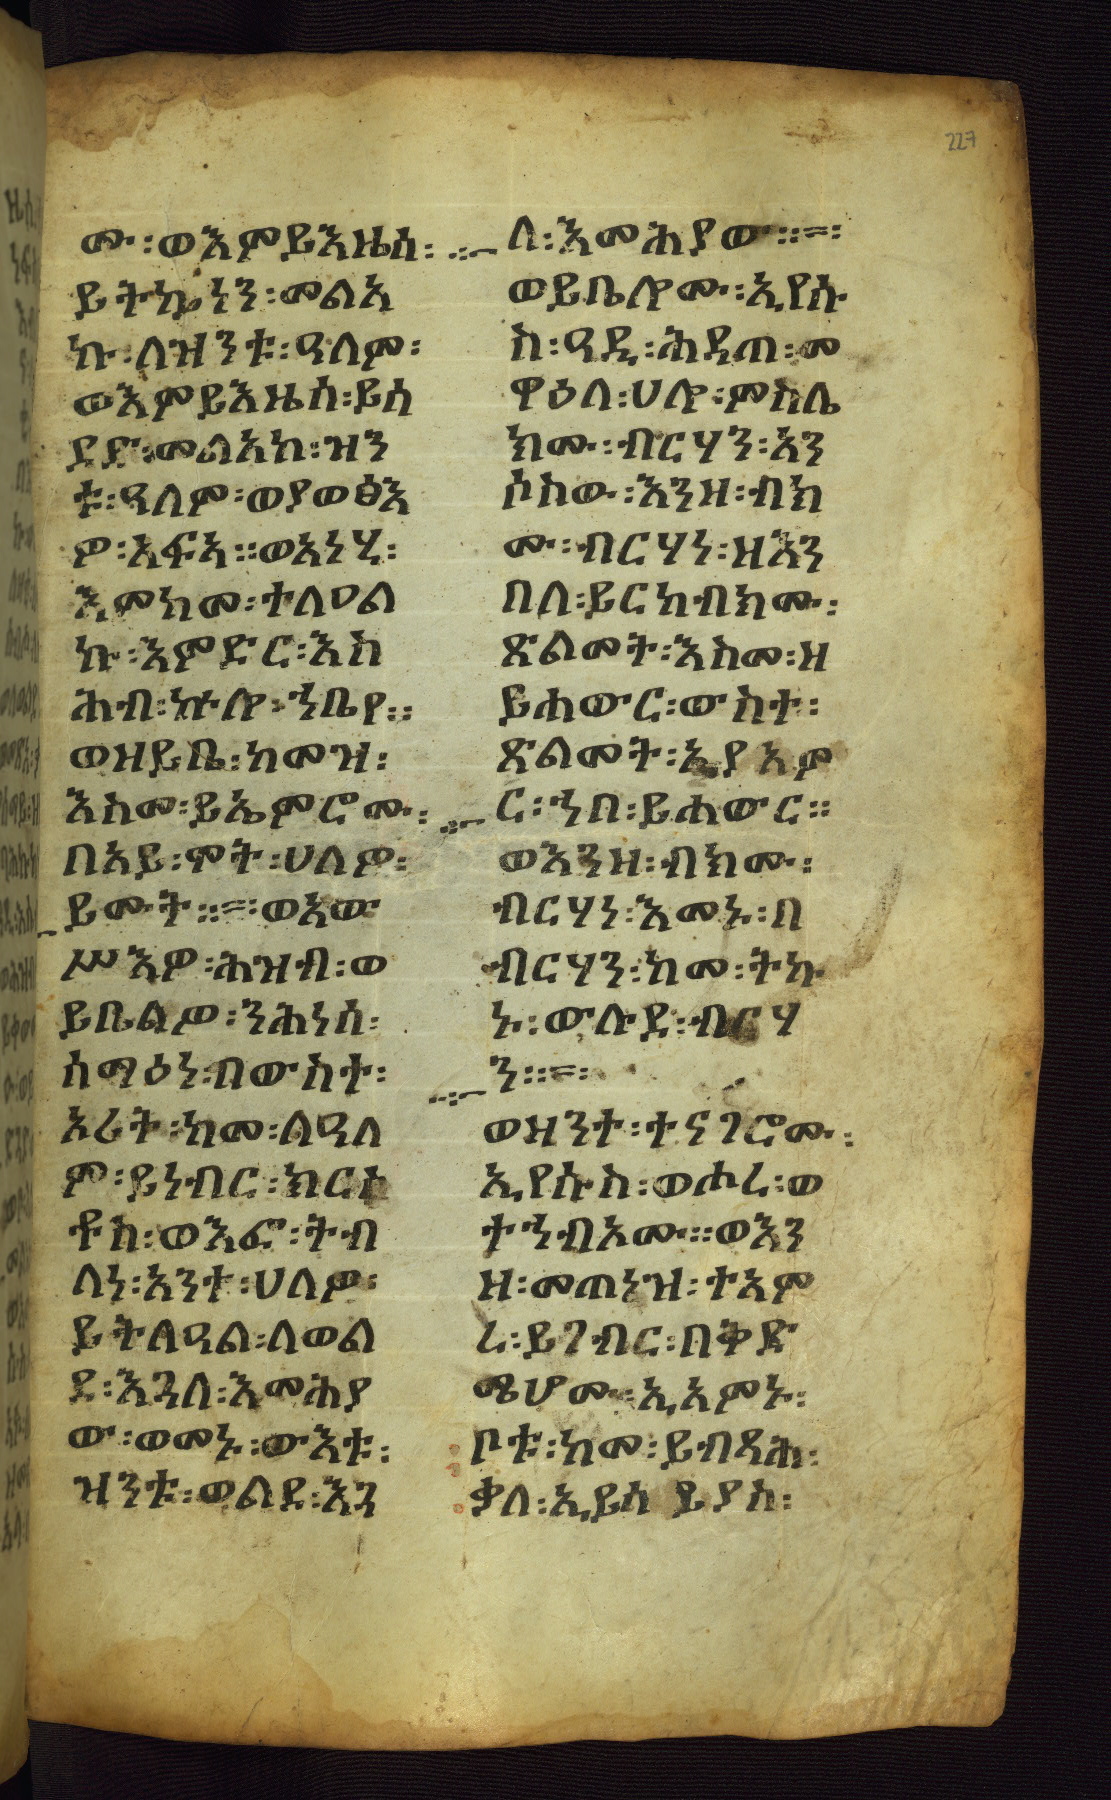 227
ሙ፡ወእምይእዜሰ፡
ይትኴነን፡መልአ
ኩ፡ለዝንቱ፡ዓለም፡
ወእምይእዜሰ፡ይሰ
ደድ፡መልአከ፡ዝን
ቱ፡ዓለም፡ወያወፅእ
ዎ፡አፍአ።ወአነሂ፡
እምከመ፡ተለዐል
ኩ፡እምድር፡እስ
ሕብ፡ኵሎ፡ኀቤየ።
ወዘይቤ፡ከመዝ፡
እስመ፡ይኤምሮሙ፡
በአይ፡ሞት፡ሀለዎ፡
ይሙት።=፡ወአው
ሥእዎ፡ሕዝብ፡ወ
ይቤልዎ፡ንሕነሰ፡
ሰማዕነ፡በውስተ፡
ኦሪት፡ከመ፡ለዓለ
ም፡ይነብር፡ክርስ
ቶስ፡ወእፎ፡ትብ
ለነ፡አንተ፡ሀለዎ፡
ይትለዓል፡ለወል
ደ፡እጓለ፡እመሕያ
ው፡ወመኑ፡ውእቱ፡
ዝንቱ፡ወልደ፡እጓ
ለ፡እመሕያው።=፡
ወይቤሎሙ፡ኢየሱ
ስ፡ዓዲ፡ሕዳጠ፡መ
ዋዕለ፡ሀሎ፡ምስሌ
ክሙ፡ብርሃን፡አን
ሶስው፡እንዘ፡ብክ
ሙ፡ብርሃነ፡ዘእን
በለ፡ይርከብክሙ፡
ጽልመት፡እስመ፡ዘ
ይሐውር፡ውስተ፡
ጽልመት፡ኢያአም
ር፡ኀበ፡ይሐውር።
ወእንዘ፡ብክሙ፡
ብርሃነ፡እመኑ፡በ
ብርሃን፡ከመ፡ትኩ
ኑ፡ውሉደ፡ብርሃ
ን።=፡
ወዘንተ፡ተናገሮሙ፡
ኢየሱስ፡ወሖረ፡ወ
ተኀብኦሙ።ወእን
ዘ፡መጠነዝ፡ተአም
ረ፡ይገብር፡በቅድ
ሜሆሙ፡ኢአምኑ፡
ቦቱ፡ከመ፡ይብጻሕ፡
ቃለ፡ኢይሰይያስ፡